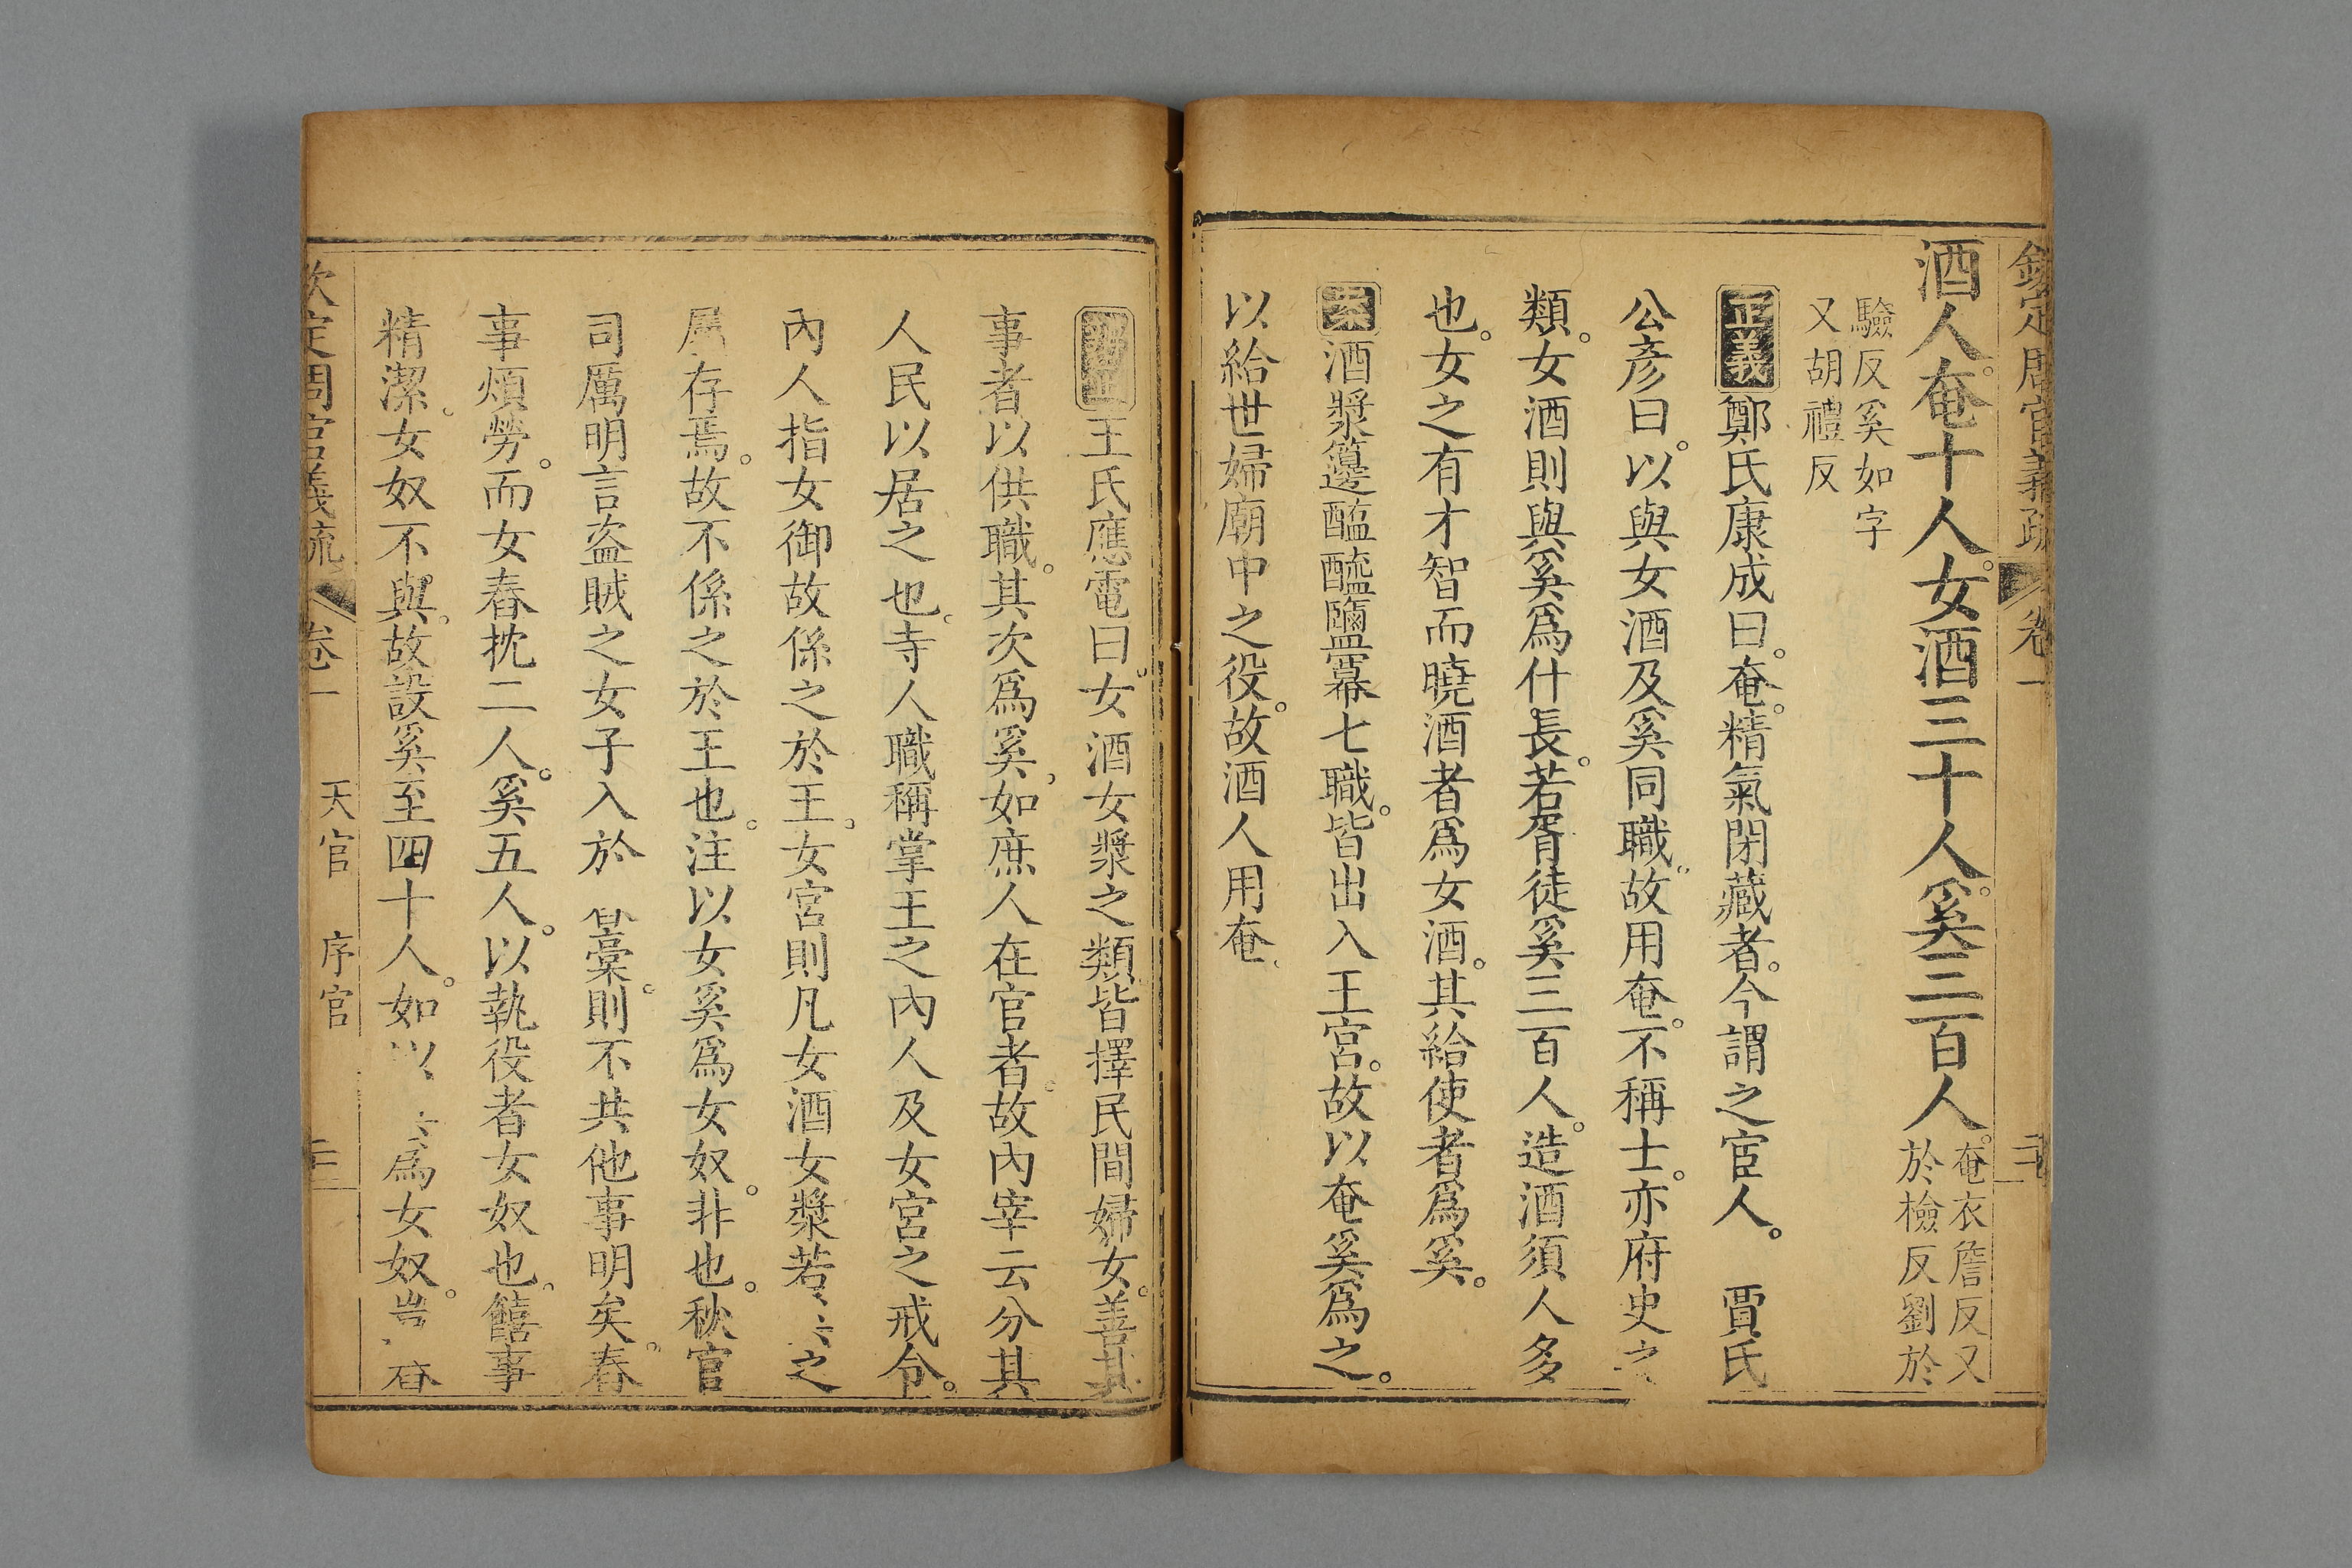 欽定周官義疏 卷一
酒人奄十人女酒三十人奚三百人奄衣詹反又
於檢反劉於
驗反奚如字
又胡禮反
正義鄭氏康成曰奄精氣閉藏者今謂之宦人 賈氏
公彥曰以與女酒及奚同職故用奄不稱士亦府史之
類女酒則與奚爲什長若胥徒奚三百人造酒須人多
也女之有才智而曉酒者爲女酒其給使者爲奚
案酒漿籩醢醯鹽冪七職皆出入王宮故以奄奚爲之
以給世婦廟中之役故酒人用奄
王氏應電曰女酒女漿之類皆擇民間婦女善其
事者以供職其次爲奚如庶人在官者故內宰云分其
人民以居之也寺人職稱掌王之內人及女宮之戒令
內人指女御故係之於王女宮則凡女酒女漿若之
屬存焉故不係之於王也注以女奚爲女奴非也秋官
司厲明言盜賊之女子入於舂槀則不共他事明矣舂
事煩勞而女舂抌二人奚五人以執役者女奴也饎事
精潔女奴不與故設奚至四十人如以爲女奴豈舂
欽定周官義疏 卷一 天官 序官